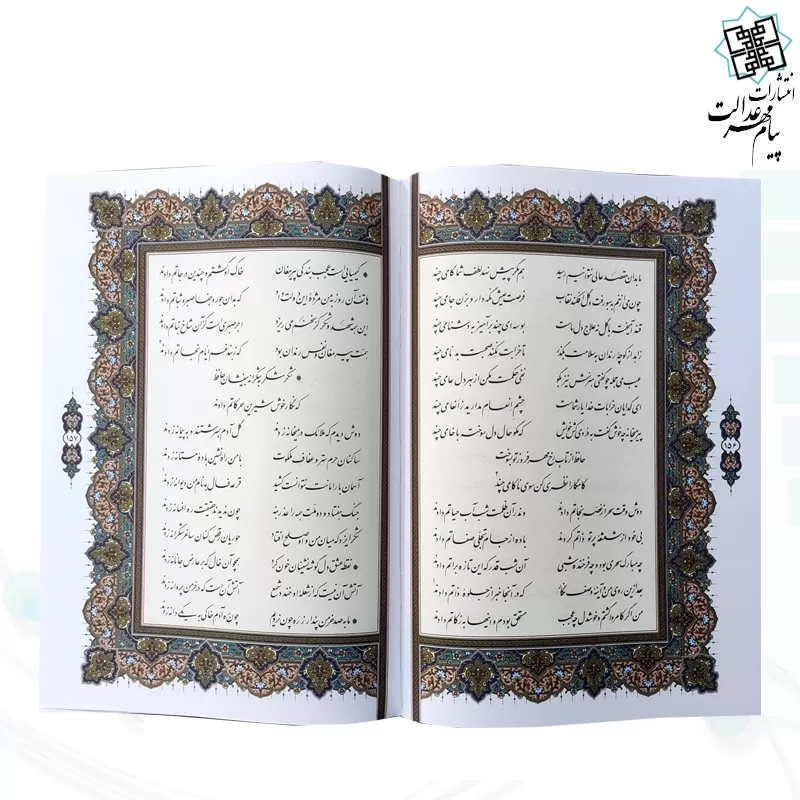 انتشارات
پیام مهر عدالت
ما بدان مقصد عالی نتوانیم رسید هم مگر پیش نهد لطف شما گامی چند
چون می از خم به سبو رفت و گل افکند نقاب فرصت عیش نگه دار و بزن جامی چند
قند آمیخته با گل نه علاج دل ماست بوسه ای چند برآمیز به دشنامی چند
زاهد از کوچه رندان به سلامت بگذر تا خرابت نکند صحبت بدنامی چند
عیب می جمله چو گفتی هنرش نیز بگو نفی حکمت مکن از بهر دل عامی چند
ای گدایان خرابات خدا یار شماست چشم انعام مدارید ز انعامی چند
پیر میخانه چه خوش گفت به دردی کش خویش که مگو حال دل سوخته با خامی چند
حافظ از تاب رخ مهر فروز تو بسوخت
کامگارا نظری کن سوی ناکامی چند
دوش وقت سحر از غصه نجاتم دادند وندر آن ظلمت شب آب حیاتم دادند
بی خود از شعشعه پرتو ذاتم کردند باده از جام تجلی صفاتم دادند
چه مبارک سحری بود و چه فرخنده شبی آن شب قدر که این تازه براتم دادند
بعد از این روی من و آینه وصف نگار که در آنجا خبر از جلوه ذاتم دادند
من اگر کامروا گشتم و خوشدل چه عجب مستحق بودم و اینها به زکاتم دادند
۱۵۶
کیمیایی ست عجب بندگی پیر مغان خاک او گشتم و چندین درجاتم دادند
هاتف آن روز به من مژده این دولت داد که بدان جور و جفا صبر و ثباتم دادند
این همه شهد و شکر کز سخنم می ریزد اجر صبری ست کز آن شاخ نباتم دادند
همت پیر مغان و نفس رندان بود که ز بند غم ایام نجاتم دادند
شکر شکر به شکرانه بیفشان حافظ
که نگار خوش شیرین حرکاتم دادند
دوش دیدم که ملائک در میخانه زدند گل آدم بسرشتند و به پیمانه زدند
ساکنان حرم ستر و عفاف ملکوت با من راه نشین باده مستانه زدند
آسمان بار امانت نتوانست کشید قرعه فال به نام من دیوانه زدند
جنگ هفتاد و دو ملت همه را عذر بنه چون ندیدند حقیقت ره افسانه زدند
شکر ایزد که میان من و او صلح افتاد حوریان رقص کنان ساغر شکرانه زدند
نقطه عشق دل گوشه نشینان خون کرد همچو آن خال که بر عارض جانانه زدند
آتش آن نیست که از شعله او خندد شمع آتش آن است که در خرمن پروانه زدند
ما به صد خرمن پندار ز ره چون نرویم چون ره آدم خاکی به یکی دانه زدند
۱۵۷